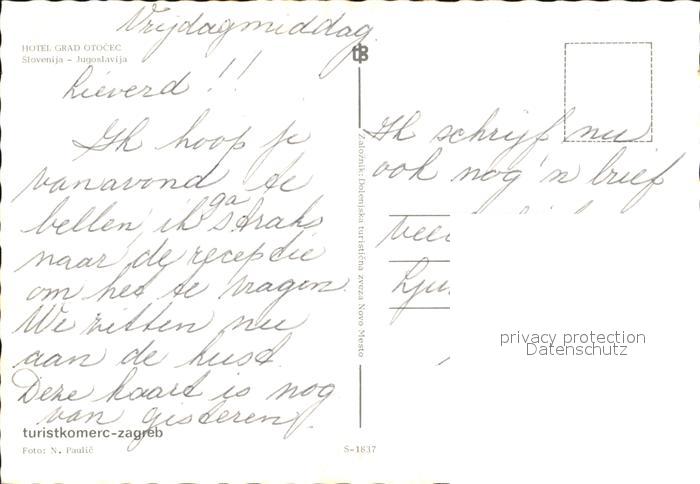 Vrijdagmiddag.
HOTEL GRAD OTOČEC
Slovenija – Jugoslavija
Lieverd !!
Ik hoop je
vanavond te
bellen, ik ga straks
naar de receptie
om het te vragen.
We zitten nu
aan de kust.
Deze kaart is nog
van gisteren.
turistkomerc-zagreb
Foto: N. Paulič
S-1837
Založnik: Dolenjska turistična zveza Novo Mesto
Ik schrijf nu
ook nog 'n brief
privacy protection
Datenschutz